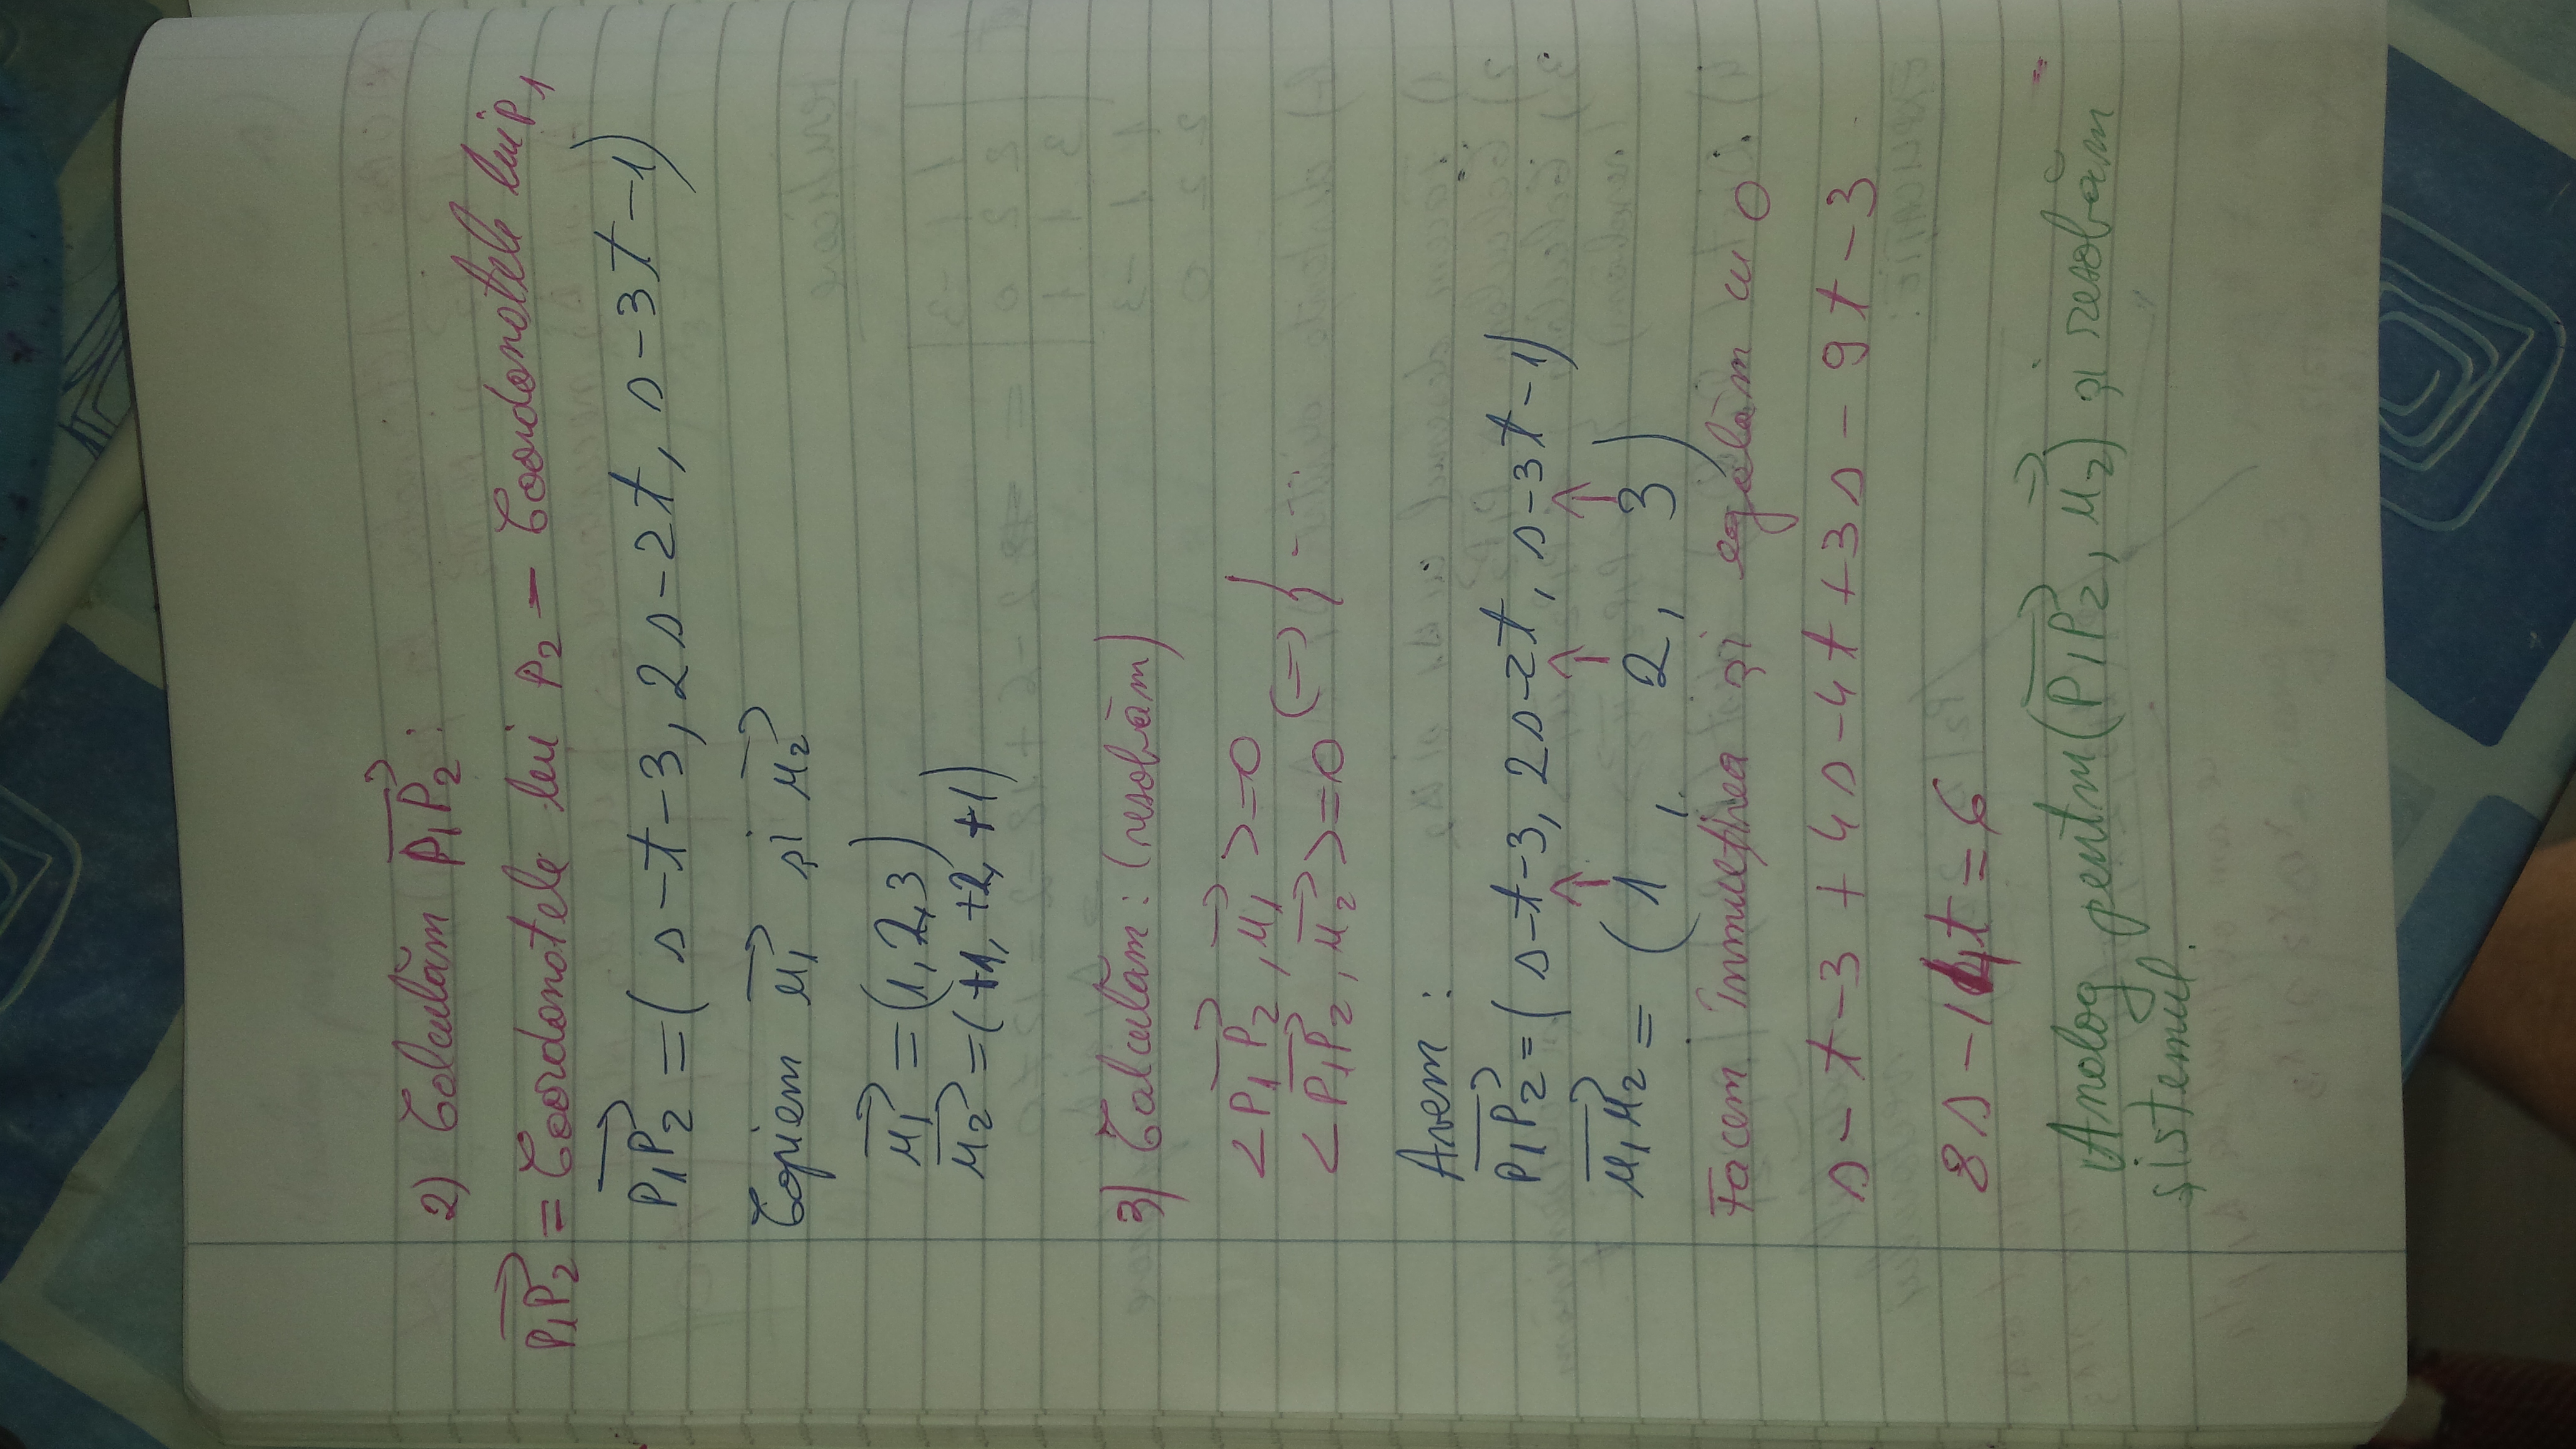 2) Calculăm P₁P₂:
P₁P₂ = Coordonatele lui P₂ - Coordonatele lui P₁
P₁P₂ = (s-t-3, 2s-2t, s-3t-1)
Copiem u₁ și u₂
u₁ = (1, 2, 3)
u₂ = (+1, +2, +1)
3) Calculăm: (rezolvăm)
<P₁P₂, u₁> = 0
<P₁P₂, u₂> = 0 (=) { ---
Avem:
P₁P₂ = (s-t-3, 2s-2t, s-3t-1)
u₁u₂ = (1, 2, 3)
Facem înmulțirea și egalăm cu 0:
s-t-3+4s-4t+3s-9t-3
8s-14t=6
Analog pentru (P₁P₂, u₂) și rezolvăm
sistemul.